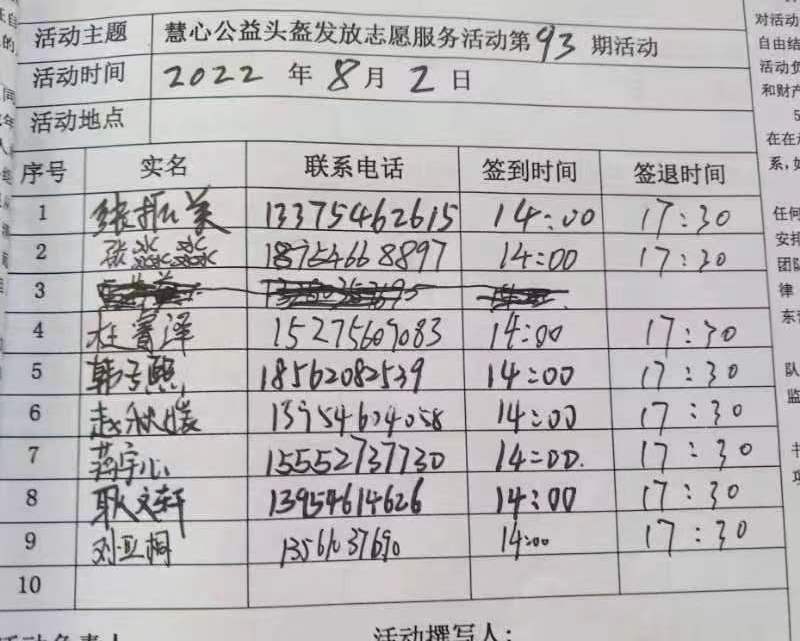 活动主题 慧心公益头盔发放志愿服务活动第93期活动
活动时间 2022 年 8 月 2 日
活动地点
序号 实名 联系电话 签到时间 签退时间
1 张振美 13375462615 14:00 17:30
2 张淼淼 18754668897 14:00 17:30
3
4 杜睿泽 15275609083 14:00 17:30
5 韩子熙 18562082539 14:00 17:30
6 赵秋媛 13954604058 14:00 17:30
7 蒋宇心 15552737730 14:00 17:30
8 耿文轩 13954614626 14:00 17:30
9 刘亚桐 13561037690 14:00 17:30
10
活动撰写人: